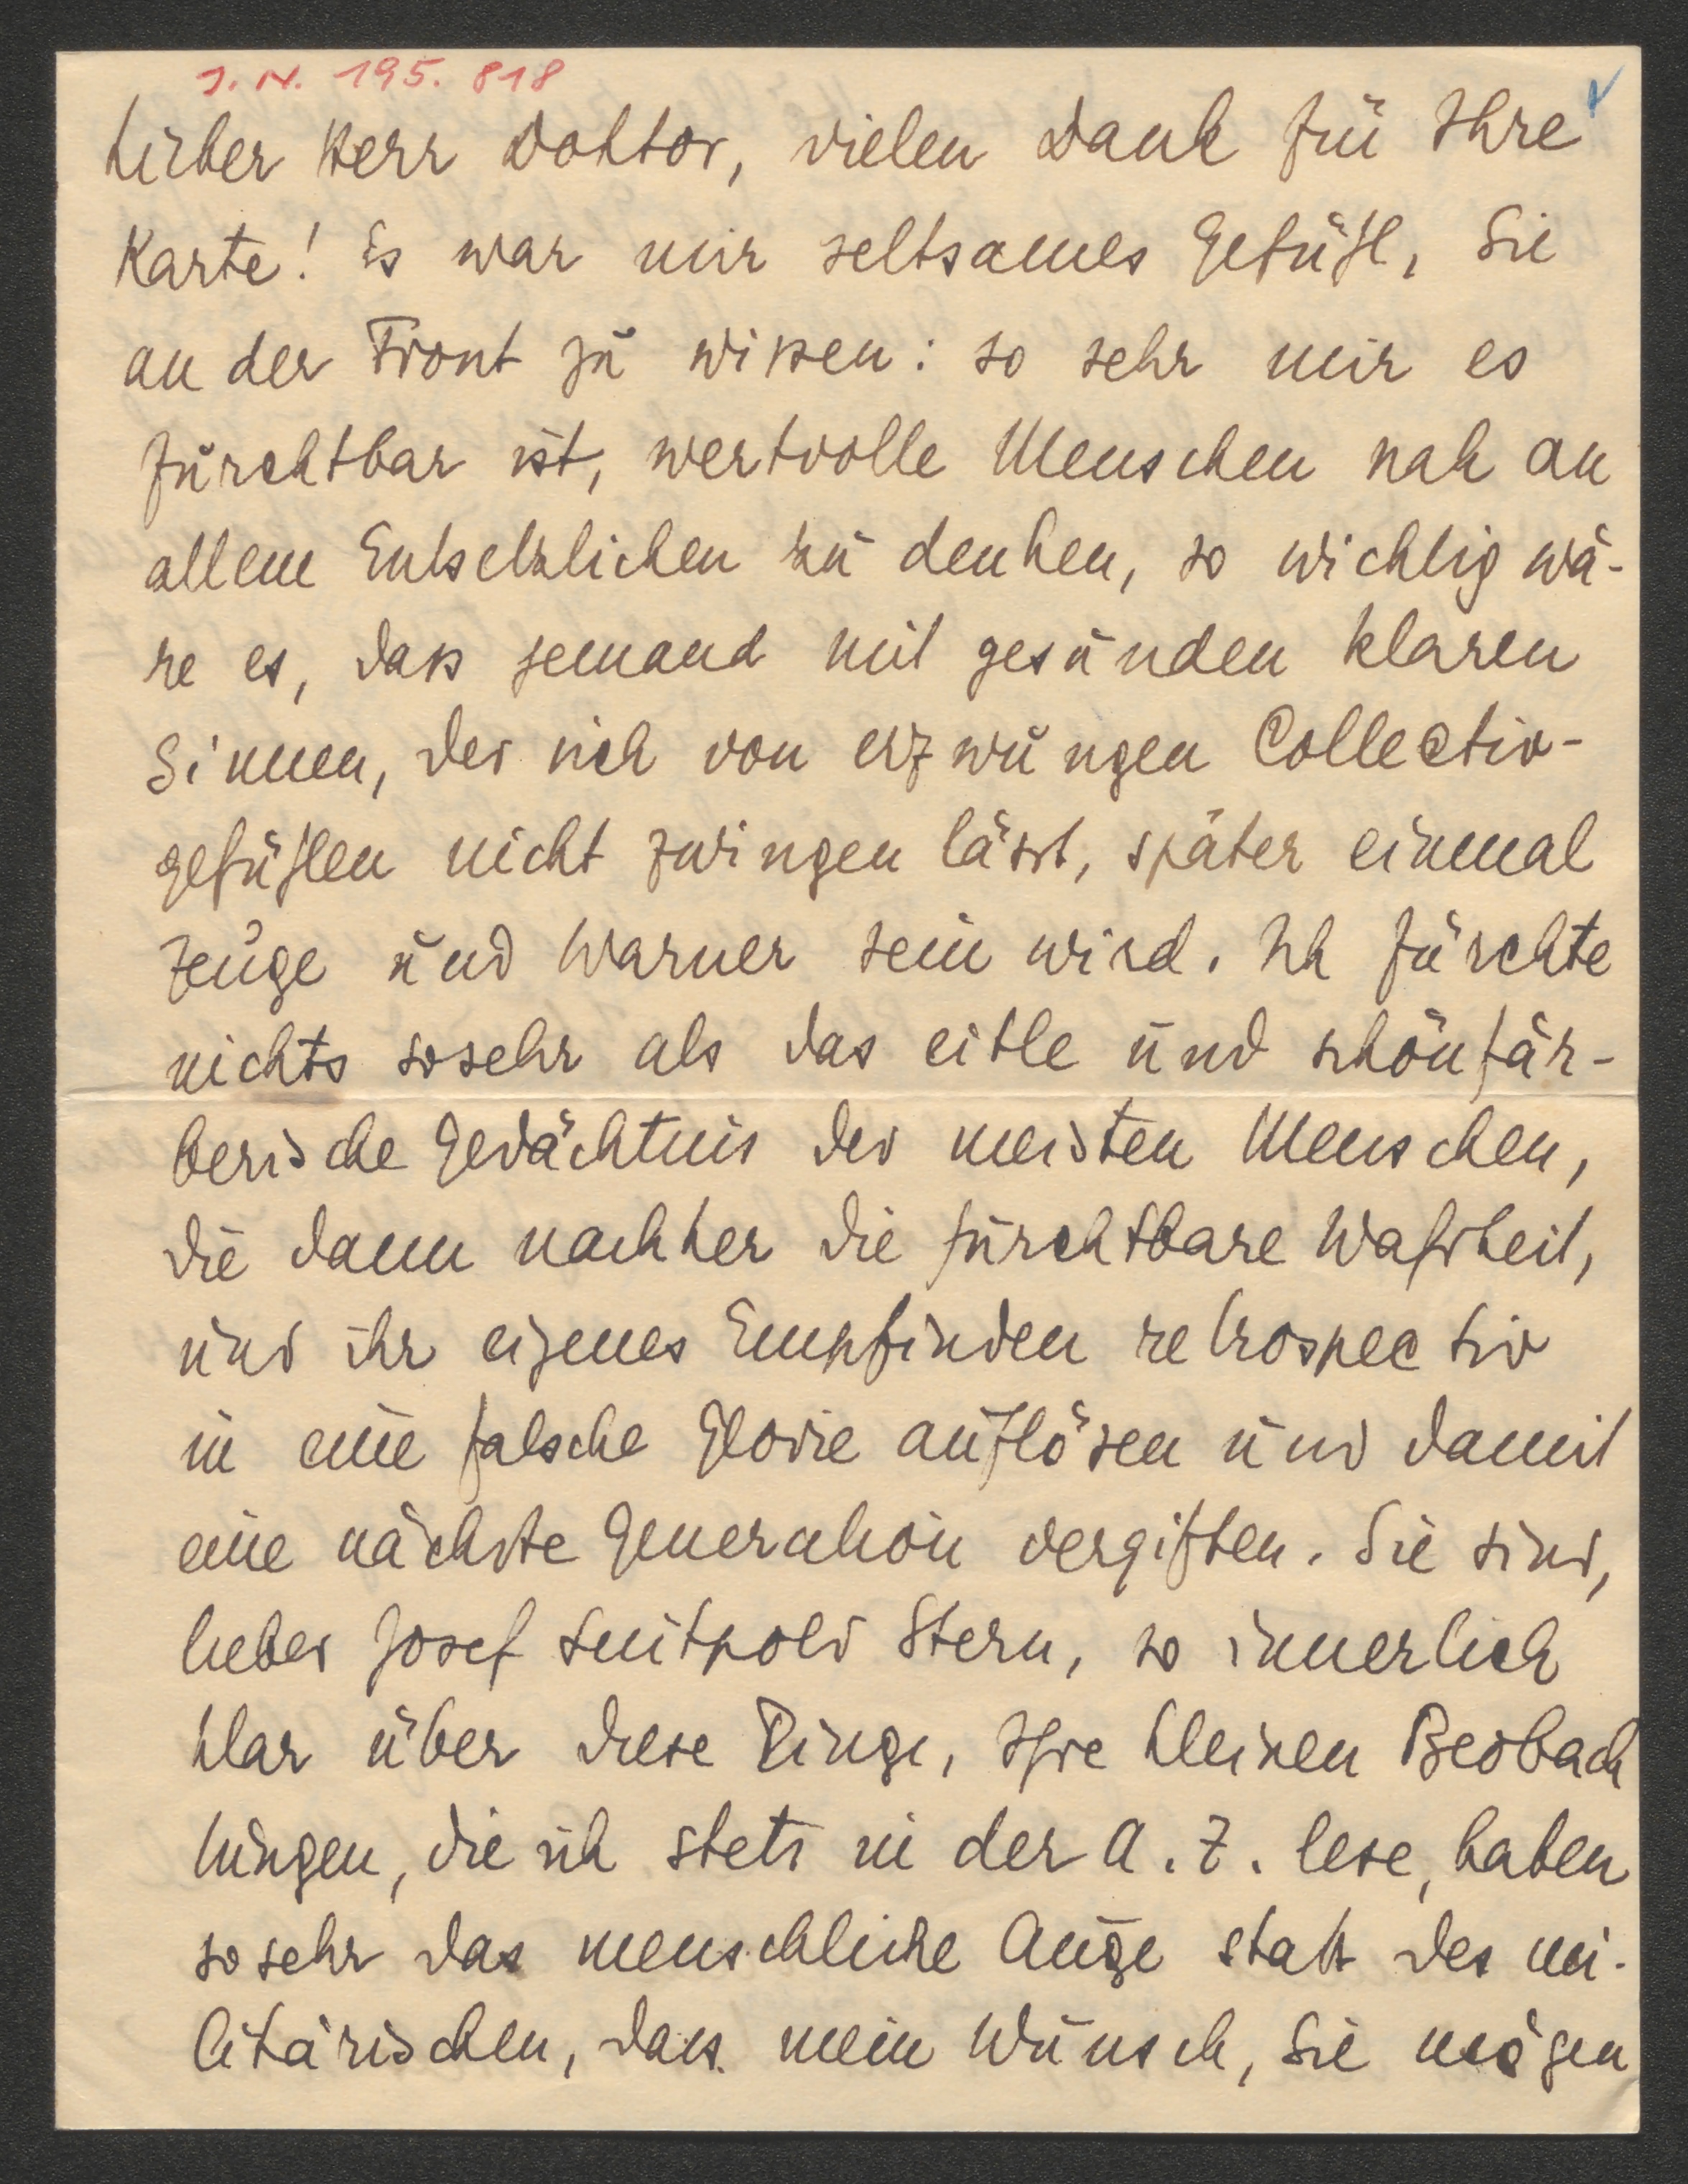 I. N. 195.818
Lieber Herr Doktor, vielen Dank für Ihre
Karte! Es war mir seltsames Gefühl, Sie
an der Front zu wissen: so sehr mir es
furchtbar ist, wertvolle Menschen nah an
allem Entsetzlichen zu denken, so wichtig wä-
re es, dass jemand mit gesunden klaren
Sinnen, der sich von erzwungen Collectiv-
gefühlen nicht zwingen lässt, später einmal
Zeuge und Warner sein wird. Ich fürchte
nichts sosehr als das eitle und schönfär-
berische Gedächtnis der meisten Menschen,
die dann nachher die furchtbare Wahrheit,
und ihr eigenes Empfinden retrospectiv
in eine falsche Glorie auflösen und damit
eine nächste Generation vergiften. Sie sind,
lieber Josef Luitpold Stern, so innerlich
klar über diese Dinge, Ihre kleinen Beobach
tungen, die ich stets in der A. Z. lese, haben
so sehr das menschliche Auge statt des mi-
litärischen, dass mein Wunsch, Sie mögen